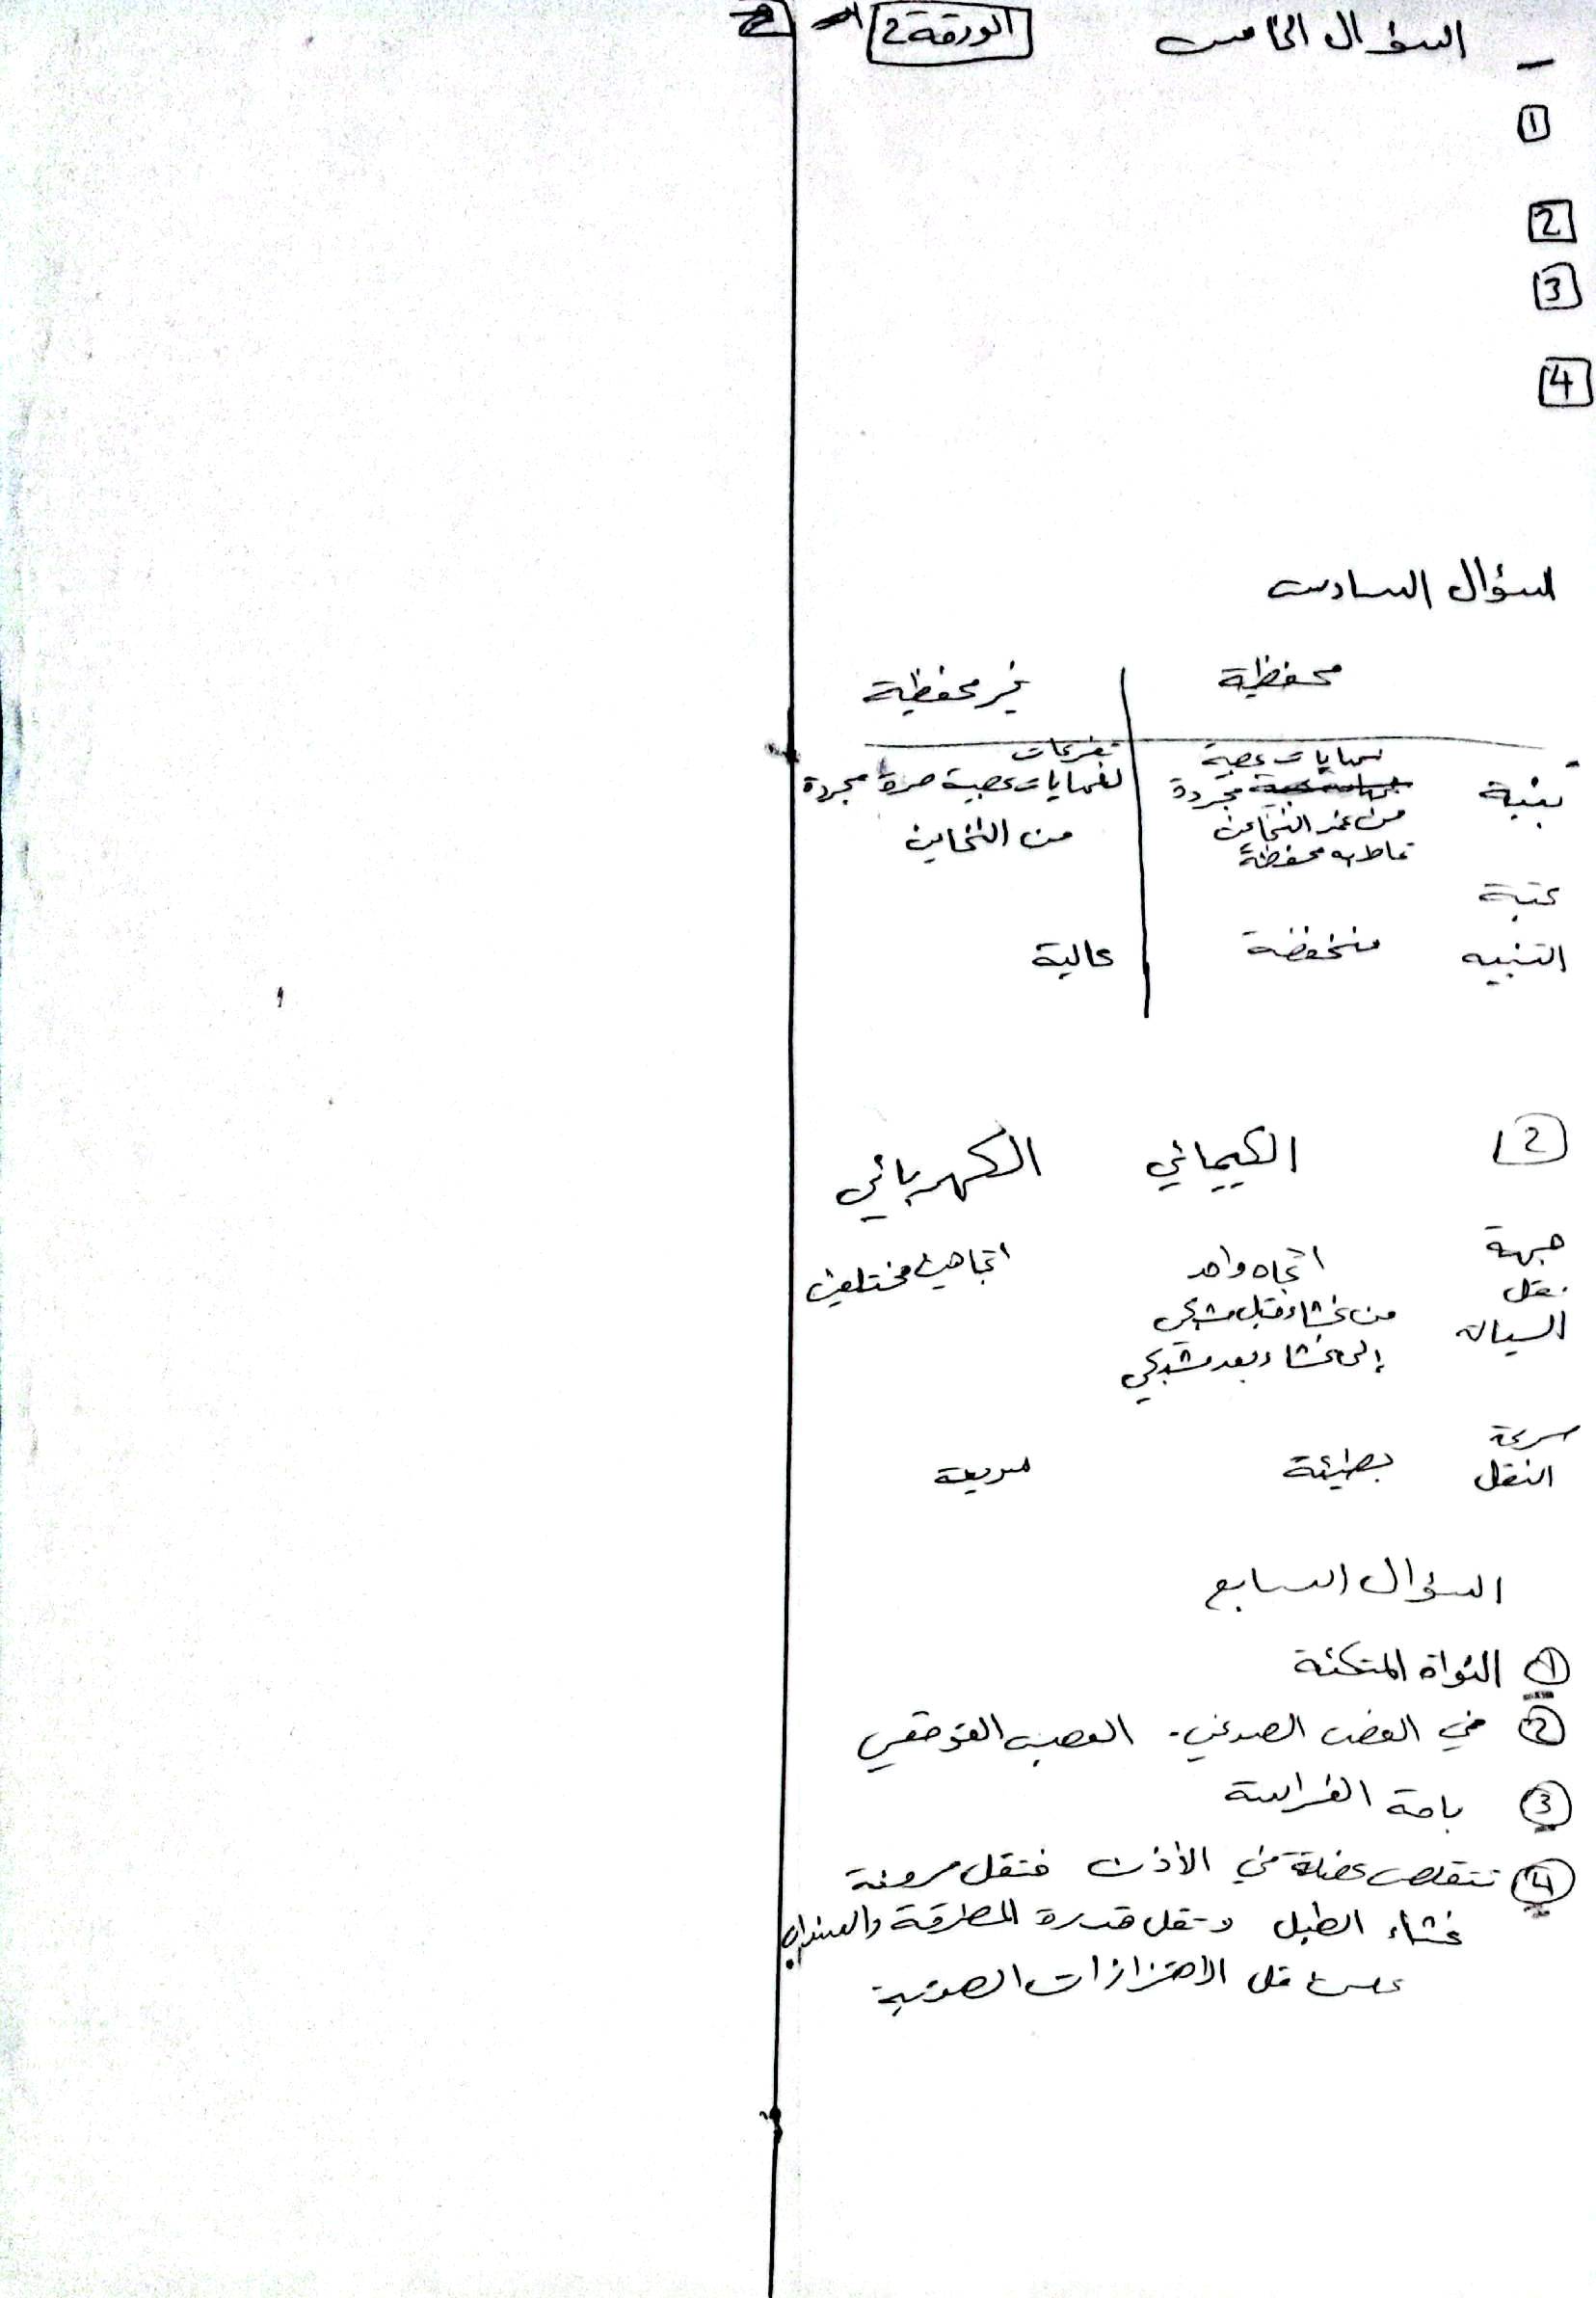 السؤال الخامس
الورقة 2
1
2
3
4
السؤال السادس
محفظية غير محفظية
بنية
نهايات عصبية
مجردة
من غمد النخاعين
تحاط به محفظة
تفرعات
لنهايات عصبية حرة مجردة
من النخاعين
عتبة
التنبيه منخفضة عالية
2 الكيميائي الكهربائي
جهة
نقل
السيالة
اتجاه واحد
من غشاء قبل مشبكي
إلى غشاء بعد مشبكي
اتجاهين مختلفين
سرعة
النقل بطيئة سريعة
السؤال السابع
1 النواة المتكئة
2 في الفص الصدغي. العصب القوقعي
3 باحة الفراسة
4 تتقلص عضلة في الأذن فتقل مرونة
غشاء الطبل وتقل قدرة المطرقة والسندان
على نقل الاهتزازات الصوتية